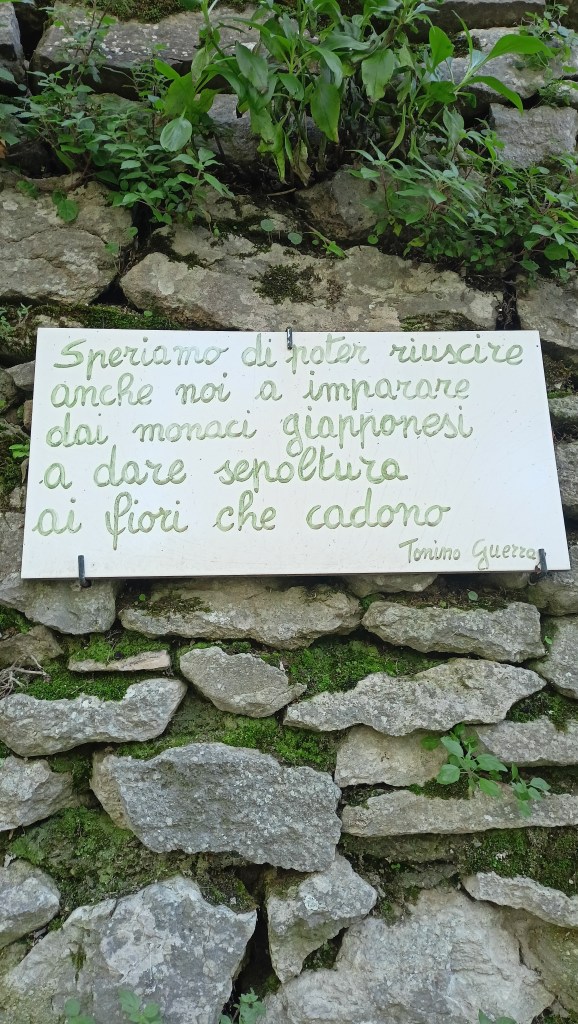 Speriamo di poter riuscire
anche noi a imparare
dai monaci giapponesi
a dare sepoltura
ai fiori che cadono
Tonino Guerra